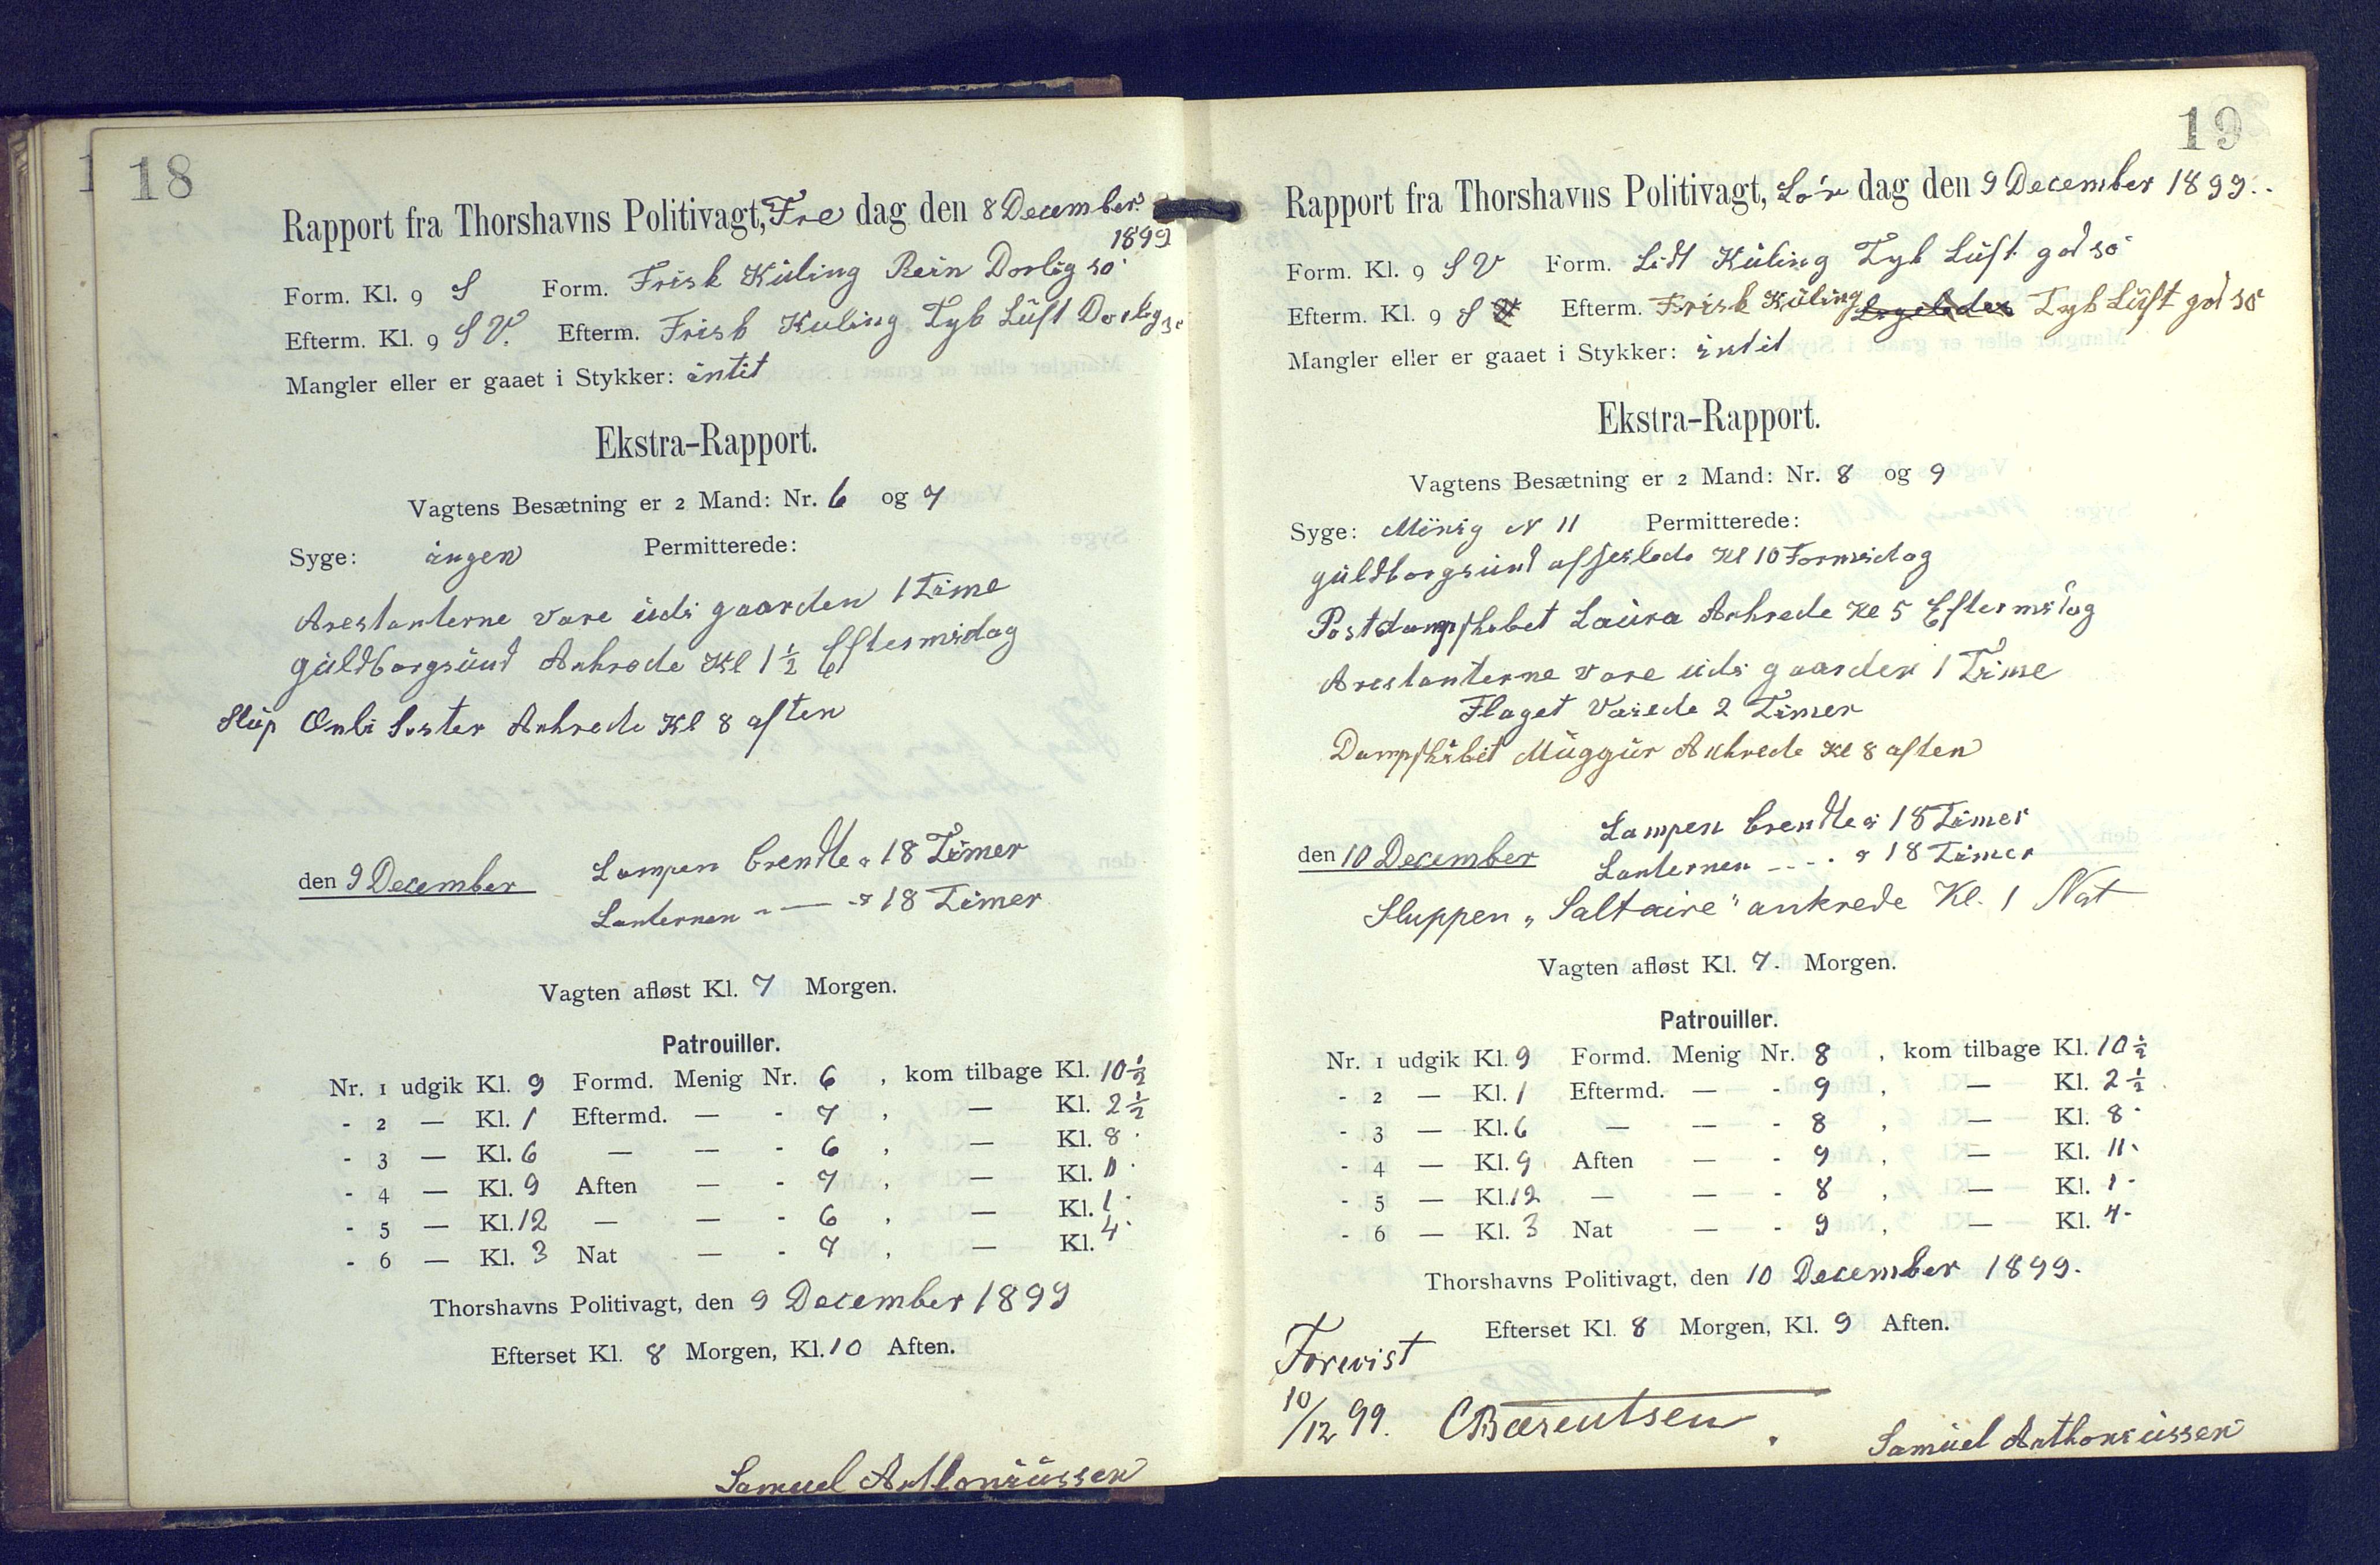 18
Rapport fra Thorshavns Politivagt, Fre dag den 8 December
1899
Form. Kl. 9 S Form. Frisk Küling Rein Dorlig sö
Efterm. Kl. 9 S V. Efterm. Frisk Kuling Tyk Lüft Dorlig sö
Mangler eller er gaaet i Stykker: intit
Ekstra-Rapport.
Vagtens Besætning er 2 Mand: Nr. 6 og 7
Syge: ingen Permitterede:
Arestanterne vare üdi gaarden 1 Time
güldborgsünd Ankrede Kl 1 ½ Eftermidag
Slüp Onli Sister Ankrede Kl 8 aften
den 9 December Lampen brendte i 18 Timer
Lanternen - — - i 18 Timer
Vagten afløst Kl. 7 Morgen.
Patrouiller.
Nr. 1 udgik Kl. 9 Formd. Menig Nr. 6 , kom tilbage Kl. 10 ½
- 2 — Kl. 1 Eftermd. — - 7 , — Kl. 2 ½
- 3 — Kl. 6 — — - 6 , — Kl. 8 -
- 4 — Kl. 9 Aften — - 7 , — Kl. 11 -
- 5 — Kl. 12 — — - 6 , — Kl. 1 -
- 6 — Kl. 3 Nat — - 7 , — Kl. 4 -
Thorshavns Politivagt, den 9 December 1899
Efterset Kl. 8 Morgen, Kl. 10 Aften.
Samuel Anthoniüssen
19
Rapport fra Thorshavns Politivagt, Lör dag den 9 December 1899.
Form. Kl. 9 S V Form. Lidt Küling Tyk Lüft god sö
Efterm. Kl. 9 S V Efterm. Frisk Küling Tyk Lüft god sö
Mangler eller er gaaet i Stykker: intit
Ekstra-Rapport.
Vagtens Besætning er 2 Mand: Nr. 8 og 9
Syge: Minig N 11 Permitterede:
güldborgsünd afseilede Kl 10 Formidag
Postdampskibet Laüra Ankrede Kl 5 Eftermidag
Arestanterne vare üdi gaarden 1 Time
Flaget Vaiede 2 Timer
Dampskibet Müggür Ankrede Kl 8 aften
Lampen brendte i 18 Timer
den 10 December Lanternen - - - i 18 Timer
Sluppen „Saltaire" ankrede Kl. 1 Nat
Vagten afløst Kl. 7. Morgen.
Patrouiller.
Nr. 1 udgik Kl. 9 Formd. Menig Nr. 8 , kom tilbage Kl. 10 ½
- 2 — Kl. 1 Eftermd. — - 9 , — Kl. 2 ½
- 3 — Kl. 6 — — - 8 , — Kl. 8 -
- 4 — Kl. 9 Aften — - 9 , — Kl. 11 -
- 5 — Kl. 12 — — - 8 , — Kl. 1 -
- 6 — Kl. 3 Nat — - 9 , — Kl. 4 -
Thorshavns Politivagt, den 10 December 1899.
Efterset Kl. 8 Morgen, Kl. 9 Aften.
Forevist
10/12 99. CBærentsen.
Samüel Anthoniüssen